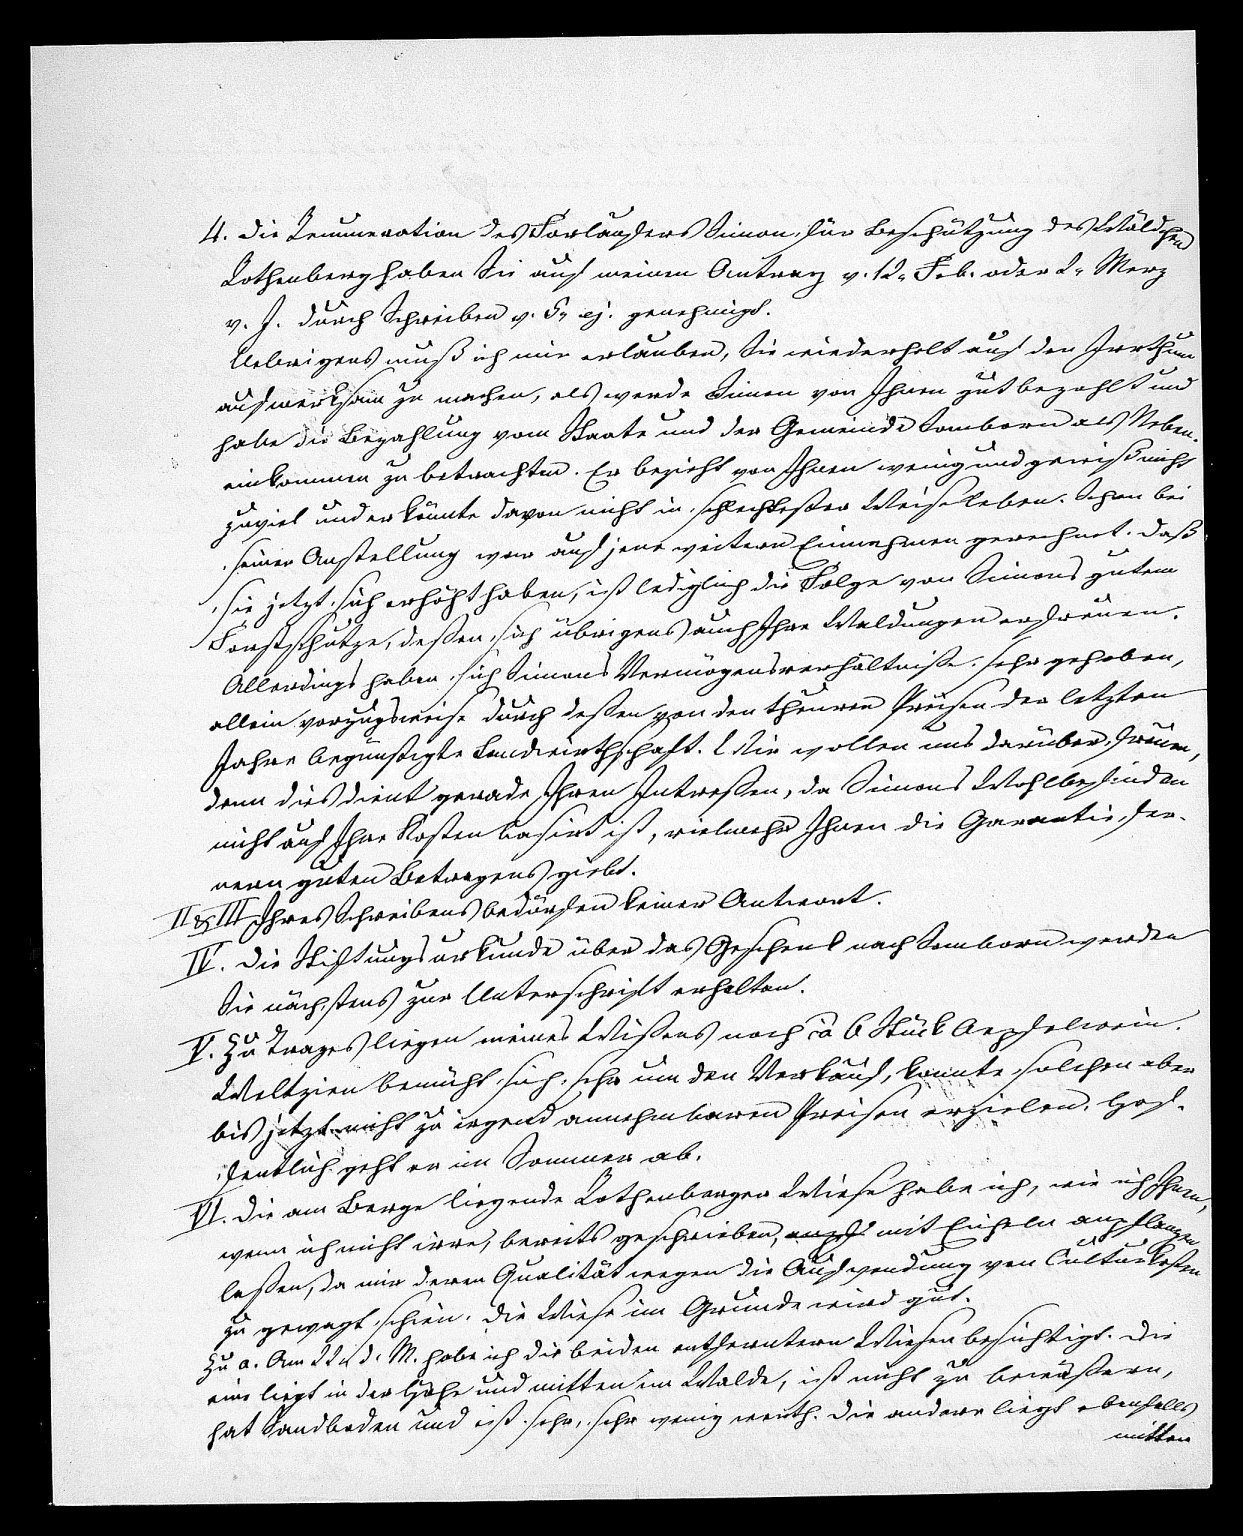 4. Die Remuneration des Forläufers Simon, für Beschützung des Wäldchen
Rothenberg haben Sie auf meinen Antrag v. 12. Feb. oder 2. Merz
v. J. durch Schreiben v. 5. ej. genehmigt.
Uebrigens muß ich mir erlauben, Sie wiederholt auf den Irrthum
aufmerksam zu machen, als werde Simon von Ihnen gut bezahlt und
habe die Bezahlung vom Staate und der Gemeinde Somborn als Neben-
einkommen zu betrachten. Er bezieht von Ihnen wenig und gewiß nicht
zuviel und er könnte davon nicht in schlechtester Weise leben. Schon bei
seiner Anstellung war auf jene weitern Einnahmen gerechnet. Daß
sie jetzt sich erhöht haben, ist lediglich die Folge von Simons gutem
Forstschutze, deßen sich übrigens auch Ihre Waldungen erfreuen.
Allerdings haben sich Simons Vermögensverhältniße sehr gehoben,
allein vorzugsweise durch deßen von den theuren Preisen der letzten
Jahre begünstigte Landwirthschaft. Wir wollen uns darüber freuen,
denn dies dient gerade Ihren Intreßen, da Simons Wohlbefinden
nicht auf Ihre Kosten basirt ist, vielmehr Ihnen die Garantie fer-
nern guten Betragens giebt.
II & III Ihres Schreibens bedürfen keiner Antwort.
IV. Die Stiftungsurkunde über das Geschenk nach Somborn werden
Sie nächstens zur Unterschrift erhalten.
V. Zu Trages liegen meines Wißens noch ca 6 Stück Aepfelwein.
Weltzien bemüht sich sehr um den Verkauf, konnte solchen aber
bis jetzt nicht zu irgend annehmbaren Preisen erzielen. Hof-
fentlich geht er im Sommer ab.
VI. Die am Berge liegende Rothenberger Wiese habe ich, wie ich Ihnen,
wenn ich nicht irre, bereits geschrieben, mit Eicheln anpflanzen
laßen, da mir deren Qualität wegen die Aufwendung von Culturkosten
zu gewagt schien. Die Wiese im Grunde wird gut.
Zu a. Am 22. d. M. habe ich die beiden entfernteren Wiesen besichtigt. Die
eine liegt in der Höhe und mitten im Walde, ist nicht zu bewäßern,
hat Sandboden und ist sehr, sehr wenig werth. Die andere liegt ebenfalls
mitten